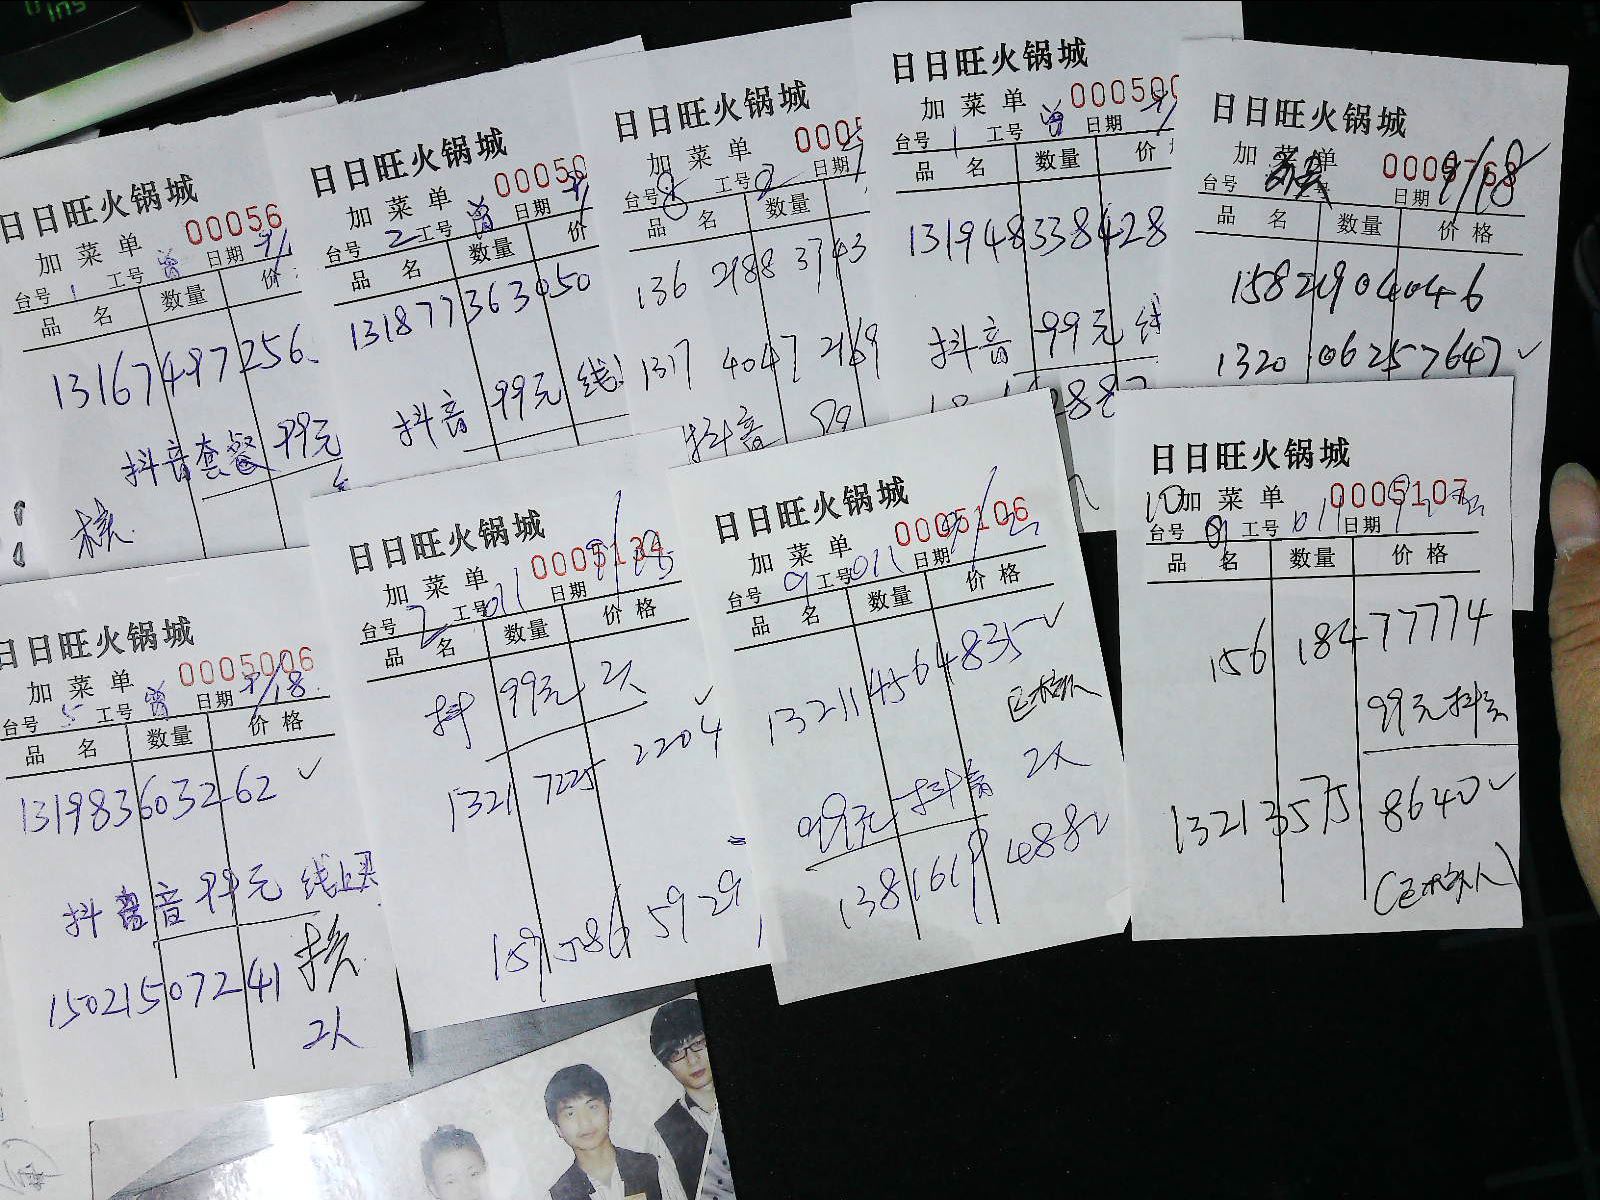 日日旺火锅城
加菜单 00056
台号 1 工号 曾 日期 9/
品名 数量 价
13167497256
抖音套餐 99元
核
日日旺火锅城
加菜单 00050
台号 2 工号 曾 日期 9/
品名 数量 价
131877363050
抖音 99元 线
日日旺火锅城
加菜单 0005
台号 8 工号 2 日期
品名 数量
136 2188 3743
1317 4047 2169
抖音 99
日日旺火锅城
加菜单 000500
台号 1 工号 曾 日期 9/
品名 数量 价
131948338428
抖音 99元 线
日日旺火锅城
加菜单 9/18
台号 工号
品名 数量 价格
15821904046
1320 06257647 ✓
日日旺火锅城
加菜单 0005006
台号 5 工号 曾 日期 9/18
品名 数量 价格
131983603262 ✓
抖音 99元 线上买
15021507241 核
2人
日日旺火锅城
加菜单 0005134
台号 2 工号 011 日期
品名 数量 价格
抖 99元 2人
1321 7225 2204 ✓
159 586 5929
日日旺火锅城
加菜单 0005106
台号 9 工号 011 日期
品名 数量 价格
132114564835 ✓
已核对
99元 抖音 2人
138 1619 488
日日旺火锅城
10 加菜单 0005107
台号 工号 011 日期
品名 数量 价格
156 184 77774
99元抖音
1321 3575 8640 ✓
(已核对)